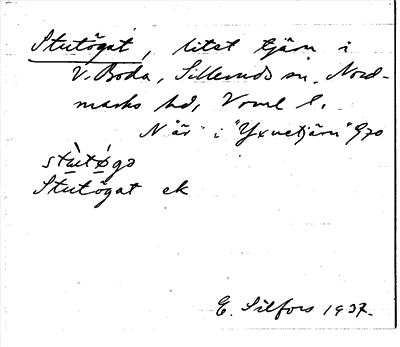 Stutögat, litet tjärn i
V. Boda, Silleruds sn, Nord-
marks hd, Vrml l.
N "är" i "Yxnetjärn" 970
stùtǿgə
Stutögat ek
E. Silfors 1937.